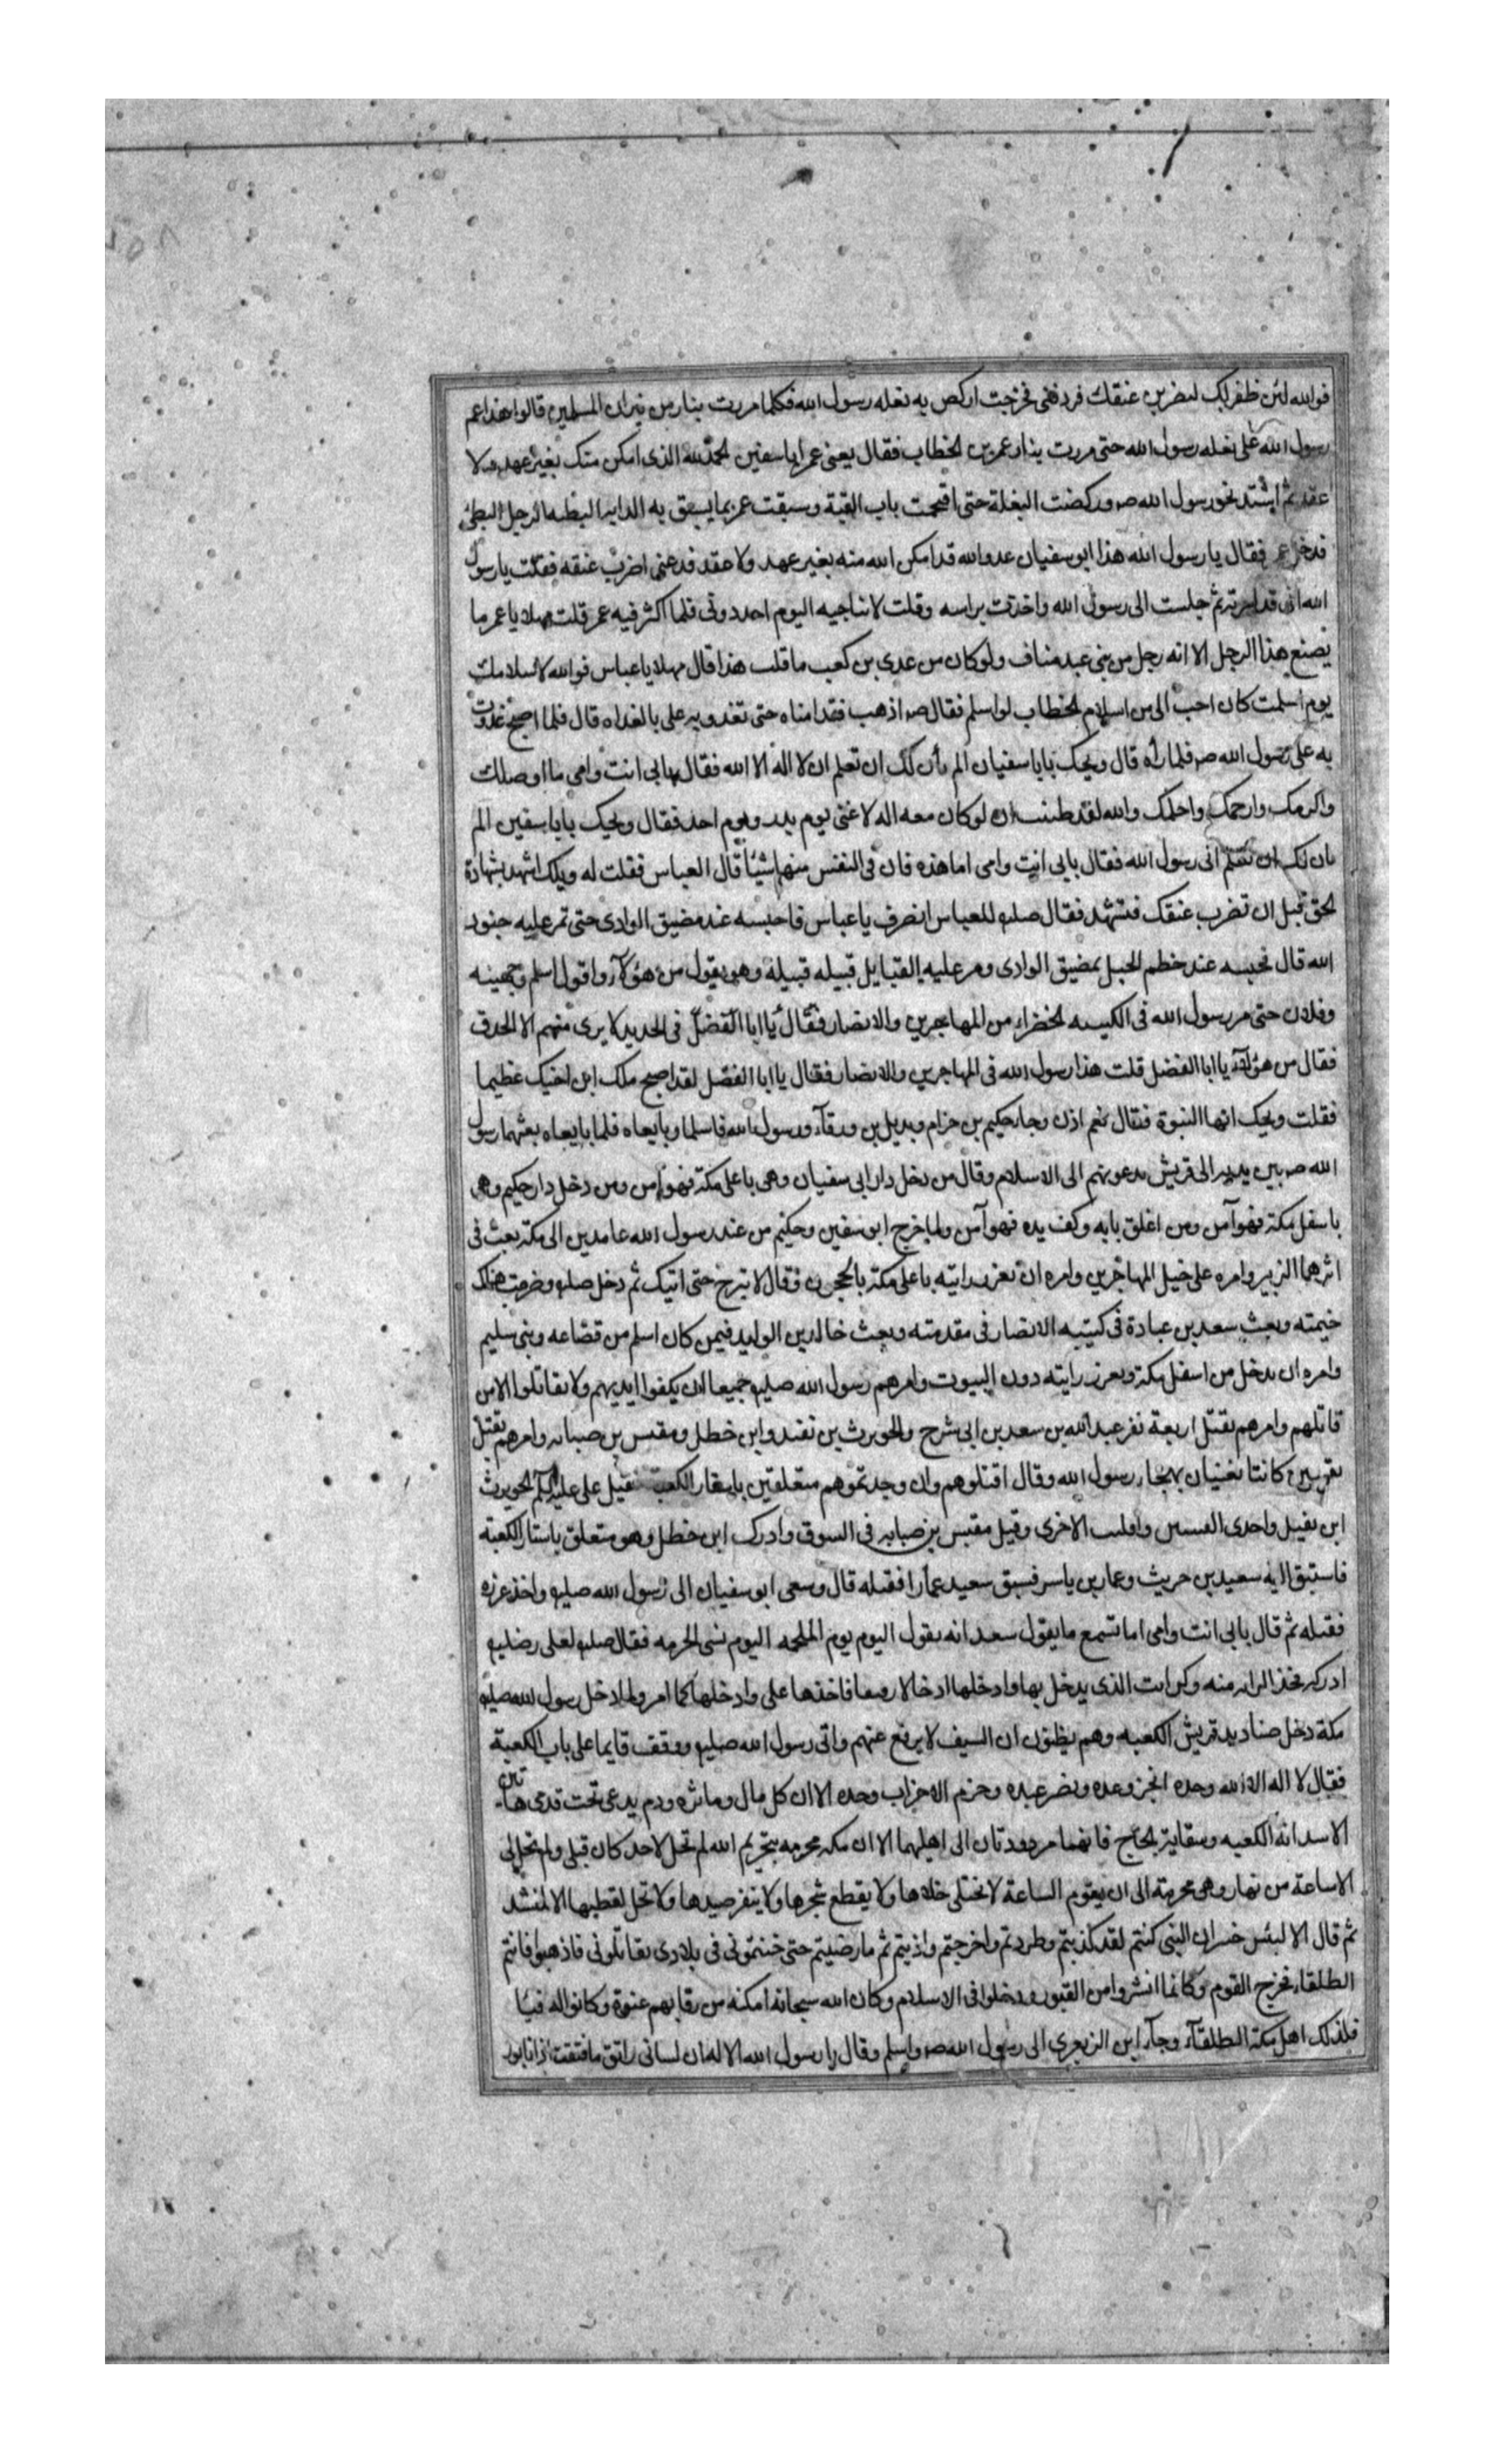 فوالله لئن ظفر بك ليضربن عنقك فردفنى فخرجت اركض به بغله رسول الله فكلما مررت بنار من نيران المسلمين قالوا هذا عم
رسول الله على بغله رسول الله حتى مررت بنار عمر بن الخطاب فقال يعنى عمر ابا سفين الحمد لله الذى امكن منك بغير عهد ولا
عقد ثم اشتد نحو رسول الله صم وركضت البغلة حتى اقتحمت باب القبة وسبقت عمر بما يسبق به الدابه البطيه الرجل البطئ
فدخل عمر فقال يا رسول الله هذا ابو سفيان عدو الله قد امكن الله منه بغير عهد ولا عقد فدعنى اضرب عنقه فقلت يا رسول
الله انى قد اجرته ثم جلست الى رسول الله واخذت براسه وقلت لا يناجيه اليوم احد دونى فلما اكثر فيه عمر قلت مهلا يا عمر ما
يصنع هذا الرجل الا انه رجل من بنى عبد مناف ولو كان من عدى بن كعب ما قلت هذا قال مهلا يا عباس فوالله لاسلامك
يوم اسلمت كان احب الى من اسلام الخطاب لو اسلم فقال صم اذهب فقد امناه حتى تغدو به على بالغداه قال فلما اصبح غدوت
به على رسول الله صم فلما رأه قال ويحك يابا سفيان الم يأن لك ان تعلم ان لا اله الا الله فقال بابى انت وامى ما اوصلك
واكرمك وارحمك واحلمك والله لقد ظننت ان لو كان معه اله لاغنى يوم بدر ويوم احد فقال ويحك يابا سفين الم
يان لك ان تعلم انى رسول الله فقال بابى انت وامى اما هذه فان فى النفس منها شيئا قال العباس فقلت له ويلك اشهد بشهادة
الحق قبل ان تضرب عنقك فتشهد فقال صلم للعباس انصرف يا عباس فاحبسه عند مضيق الوادى حتى تمر عليه جنود
الله قال فحبسه عند خطم الجبل بمضيق الوادى ومر عليه القبايل قبيله قبيلة وهو يقول من هؤلآء واقول اسلم وجهينه
وفلان حتى مر رسول الله فى الكتيبه الخضراء من المهاجرين والانصار فقال يا ابا الفضل فى الحديد لا يرى منهم الا الحدق
فقال من هؤلآء يا ابا الفضل قلت هذا رسول الله فى المهاجرين والانصار فقال يا ابا الفضل لقد اصبح ملك ابن اخيك عظيما
فقلت ويحك انها النبوة فقال نعم اذن وجاء حكيم بن حزام وبديل بن ورقآء ورسول الله فاسلما وبايعاه فلما بايعاه بعثهما رسول
الله صم بين يديه الى قريش يدعونهم الى الاسلام وقال من دخل دار ابى سفيان وهى باعلى مكة فهو امن ومن دخل دار حكيم وهى
باسفل مكة فهو آمن ومن اغلق بابه وكف يده فهو آمن ولما خرج ابو سفين وحكيم من عند رسول الله عامدين الى مكة بعث فى
اثرهما الزبير وامره على خيل المهاجرين وامره ان يغرز رايته باعلى مكة بالحجون فقال لا تبرح حتى اتيك ثم دخل صلم وضربت هناك
خيمته وبعث سعد بن عبادة فى كتيبه الانصار فى مقدمته وبعث خالد بن الوليد فيمن كان اسلم من قضاعه وبنى سليم
وامره ان يدخل من اسفل مكة ويغرز رايته دون البيوت وامرهم رسول الله صلم جميعا ان يكفوا ايديهم ولا يقاتلوا الا من
قاتلهم وامرهم بقتل اربعة نفر عبد الله بن سعد بن ابى شرح والحويرث بن نفيد وابن خطل ومقبس بن صبابه وامرهم بقتل
قينتين كانتا تغنيان بهجاء رسول الله وقال اقتلوهم وان وجدتموهم متعلقين باستار الكعبة فقتل على عليه السلم الحويرث
ابن نفيل واحدى القينتين وافلتت الاخرى وقتل مقبس بن صبابه فى السوق وادرك ابن خطل وهو متعلق باستار الكعبة
فاستبق اليه سعيد بن حريث وعمار بن ياسر فسبق سعيد عمارا فقتله قال وسعى ابو سفيان الى رسول الله صلم واخذ غرزه
فقبله ثم قال بابى انت وامى اما تسمع ما يقول سعد انه يقول اليوم يوم الملحمه اليوم تسبى الحرمه فقال صلم لعلى رضليه
ادركه فخذ الرايه منه وكن انت الذى يدخل بها وادخلها ادخالا رفيقا فاخذها على وادخلها كما امر ولما دخل رسول الله صلم
مكة دخل صناديد قريش الكعبه وهم يظنون ان السيف لا يرفع عنهم واتى رسول الله صلم ووقف قايما على باب الكعبة
فقال لا اله الا الله وحده انجز وعده ونصر عبده وهزم الاحزاب وحده الا ان كل مال وماثره ودم يدعى تحت قدمى هاتين
الا سدانة الكعبه وسقاية الحاج فانهما مردودتان الى اهليهما الا ان مكه محرمه بتحريم الله لم تحل لاحد كان قبلى ولم تحل لى
الا ساعة من نهار وهى محرمة الى ان يقوم الساعة لا يختلى خلاها ولا يقطع شجرها ولا ينفر صيدها ولا تحل لقطتها الا لمنشد
ثم قال الا لبئس جيران النبى كنتم لقد كذبتم وطردتم واخرجتم واذيتم ثم ما رضيتم حتى جئتمونى فى بلادى تقاتلونى فاذهبوا فانتم
الطلقاء فخرج القوم وكانما انشروا من القبور ودخلوا فى الاسلام وكان الله سبحانه امكنه من رقابهم عنوة وكانوا له فيئا
فلذلك اهل مكة الطلقآء وجآء ابن الزبعرى الى رسول الله صم واسلم وقال يا رسول الله الاله ان لسانى راتق ما فتقت اذ انا بور